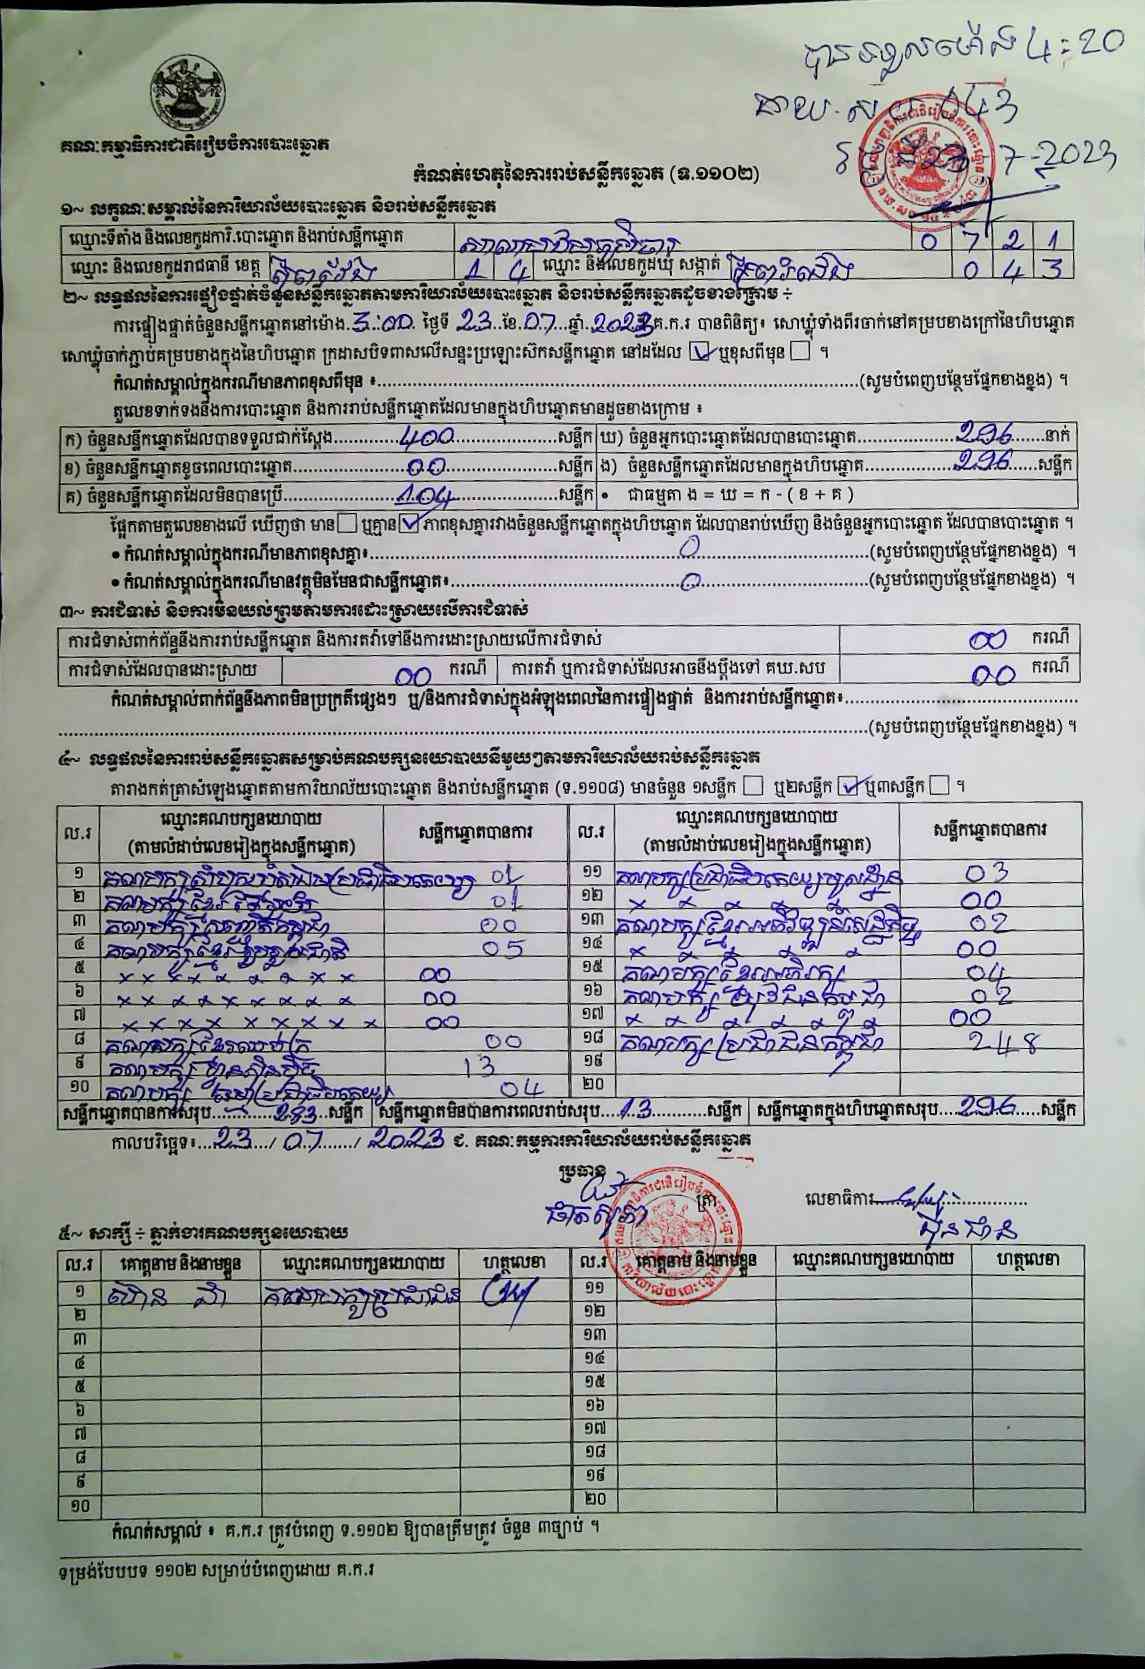 បានទទួលម៉ោង 4:20
043
23-7-2023
គណៈកម្មាធិការជាតិរៀបចំការបោះឆ្នោត
កំណត់ហេតុនៃការរាប់សន្លឹកឆ្នោត (ទ.១១០២)
១~ លក្ខណៈសម្គាល់នៃការិយាល័យបោះឆ្នោត និងរាប់សន្លឹកឆ្នោត
ឈ្មោះទីតាំង និងលេខកូដការិ.បោះឆ្នោត និងរាប់សន្លឹកឆ្នោត 0 7 2 1
ឈ្មោះ និងលេខកូដរាជធានី ខេត្ត ព្រៃវែង 1 4 ឈ្មោះ និងលេខកូដឃុំ សង្កាត់ 0 4 3
២~ លទ្ធផលនៃការផ្ទៀងផ្ទាត់ចំនួនសន្លឹកឆ្នោតតាមការិយាល័យបោះឆ្នោត និងរាប់សន្លឹកឆ្នោតដូចខាងក្រោម ៖
ការផ្ទៀងផ្ទាត់ចំនួនសន្លឹកឆ្នោតនៅម៉ោង 3:00 ថ្ងៃទី 23 ខែ 07 ឆ្នាំ 2023 គ.ក.រ បានពិនិត្យ៖ សោឃ្លុំទាំងពីរចាក់នៅគម្របខាងក្រៅនៃហិបឆ្នោត
សោឃ្លុំចាក់ភ្ជាប់គម្របខាងក្នុងនៃហិបឆ្នោត ក្រដាសបិទពាសលើសន្ទះប្រឡោះស៊កសន្លឹកឆ្នោត នៅដដែល ☑ ឬខុសពីមុន ☐ ។
កំណត់សម្គាល់ក្នុងករណីមានភាពខុសពីមុន ៖ (សូមបំពេញបន្ថែមផ្នែកខាងខ្នង) ។
តួលេខទាក់ទងនឹងការបោះឆ្នោត និងការរាប់សន្លឹកឆ្នោតដែលមានក្នុងហិបឆ្នោតមានដូចខាងក្រោម ៖
ក) ចំនួនសន្លឹកឆ្នោតដែលបានទទួលជាក់ស្តែង 400 សន្លឹក ឃ) ចំនួនអ្នកបោះឆ្នោតដែលបានបោះឆ្នោត 296 នាក់
ខ) ចំនួនសន្លឹកឆ្នោតខូចពេលបោះឆ្នោត 00 សន្លឹក ង) ចំនួនសន្លឹកឆ្នោតដែលមានក្នុងហិបឆ្នោត 296 សន្លឹក
គ) ចំនួនសន្លឹកឆ្នោតដែលមិនបានប្រើ 104 សន្លឹក • ជាធម្មតា ង = ឃ = ក - ( ខ + គ )
ផ្អែកតាមតួលេខខាងលើ ឃើញថា មាន ☐ ឬគ្មាន ☑ ភាពខុសគ្នារវាងចំនួនសន្លឹកឆ្នោតក្នុងហិបឆ្នោត ដែលបានរាប់ឃើញ និងចំនួនអ្នកបោះឆ្នោត ដែលបានបោះឆ្នោត ។
• កំណត់សម្គាល់ក្នុងករណីមានភាពខុសគ្នា៖ 0 (សូមបំពេញបន្ថែមផ្នែកខាងខ្នង) ។
• កំណត់សម្គាល់ក្នុងករណីមានវត្ថុមិនមែនជាសន្លឹកឆ្នោត៖ 0 (សូមបំពេញបន្ថែមផ្នែកខាងខ្នង) ។
៣~ ការជំទាស់ និងការមិនយល់ព្រមតាមការដោះស្រាយលើការជំទាស់
ការជំទាស់ពាក់ព័ន្ធនឹងការរាប់សន្លឹកឆ្នោត និងការតវ៉ាទៅនឹងការដោះស្រាយលើការជំទាស់ 00 ករណី
ការជំទាស់ដែលបានដោះស្រាយ 00 ករណី ការតវ៉ា ឬការជំទាស់ដែលអាចនឹងប្តឹងទៅ គឃ.សប 00 ករណី
កំណត់សម្គាល់ពាក់ព័ន្ធនឹងភាពមិនប្រក្រតីផ្សេងៗ ឬ/និងការជំទាស់ក្នុងអំឡុងពេលនៃការផ្ទៀងផ្ទាត់ និងការរាប់សន្លឹកឆ្នោត៖
(សូមបំពេញបន្ថែមផ្នែកខាងខ្នង) ។
៤~ លទ្ធផលនៃការរាប់សន្លឹកឆ្នោតសម្រាប់គណបក្សនយោបាយនីមួយៗតាមការិយាល័យរាប់សន្លឹកឆ្នោត
តារាងកត់ត្រាសំឡេងឆ្នោតតាមការិយាល័យបោះឆ្នោត និងរាប់សន្លឹកឆ្នោត (ទ.១១០៨) មានចំនួន ១សន្លឹក ☐ ឬ២សន្លឹក ☑ ឬ៣សន្លឹក ☐ ។
ល.រ ឈ្មោះគណបក្សនយោបាយ (តាមលំដាប់លេខរៀងក្នុងសន្លឹកឆ្នោត) សន្លឹកឆ្នោតបានការ ល.រ ឈ្មោះគណបក្សនយោបាយ (តាមលំដាប់លេខរៀងក្នុងសន្លឹកឆ្នោត) សន្លឹកឆ្នោតបានការ
១ 01 ១១ គណបក្សប្រជាធិបតេយ្យមូលដ្ឋាន 03
២ 01 ១២ x x x x x x 00
៣ 00 ១៣ គណបក្សខ្មែរអភិវឌ្ឍន៍សេដ្ឋកិច្ច 02
៤ គណបក្សខ្មែររួបរួមជាតិ 05 ១៤ x x x x x x 00
៥ x x x x x x x x x 00 ១៥ គណបក្សខ្មែរអភិរក្ស 04
៦ x x x x x x x x x 00 ១៦ 02
៧ x x x x x x x x x 00 ១៧ x x x x x x 00
៨ 00 ១៨ គណបក្សប្រជាជនកម្ពុជា 248
៩ គណបក្សហ្វ៊ុនស៊ិនប៉ិច 13 ១៩
១០ 04 ២០
សន្លឹកឆ្នោតបានការសរុប 283 សន្លឹក សន្លឹកឆ្នោតមិនបានការពេលរាប់សរុប 13 សន្លឹក សន្លឹកឆ្នោតក្នុងហិបឆ្នោតសរុប 296 សន្លឹក
កាលបរិច្ឆេទ៖ 23 / 07 / 2023 ជ. គណៈកម្មការការិយាល័យរាប់សន្លឹកឆ្នោត
ប្រធាន ត្រា លេខាធិការ
៥~ សាក្សី ៖ ភ្នាក់ងារគណបក្សនយោបាយ
ល.រ គោត្តនាម និងនាមខ្លួន ឈ្មោះគណបក្សនយោបាយ ហត្ថលេខា ល.រ គោត្តនាម និងនាមខ្លួន ឈ្មោះគណបក្សនយោបាយ ហត្ថលេខា
១ គណបក្សប្រជាជន ១១
២ ១២
៣ ១៣
៤ ១៤
៥ ១៥
៦ ១៦
៧ ១៧
៨ ១៨
៩ ១៩
១០ ២០
កំណត់សម្គាល់ ៖ គ.ក.រ ត្រូវបំពេញ ទ.១១០២ ឱ្យបានត្រឹមត្រូវ ចំនួន ៣ច្បាប់ ។
ទម្រង់បែបបទ ១១០២ សម្រាប់បំពេញដោយ គ.ក.រ